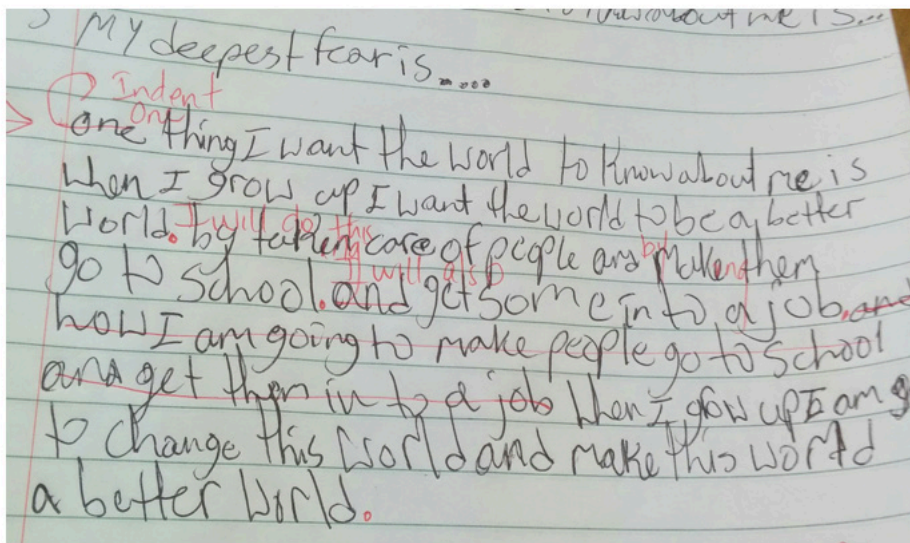 about me is...
My deepest fear is.....
Indent
one
one thing I want the world to know about me is
when I grow up I want the world to be a better
I will do this
world. by taken care of people and make them
I will also
go to school. and get some in to a job. and
how I am going to make people go to school
and get them in to a job when I grow up I am g
to change this world and make this world
a better world.